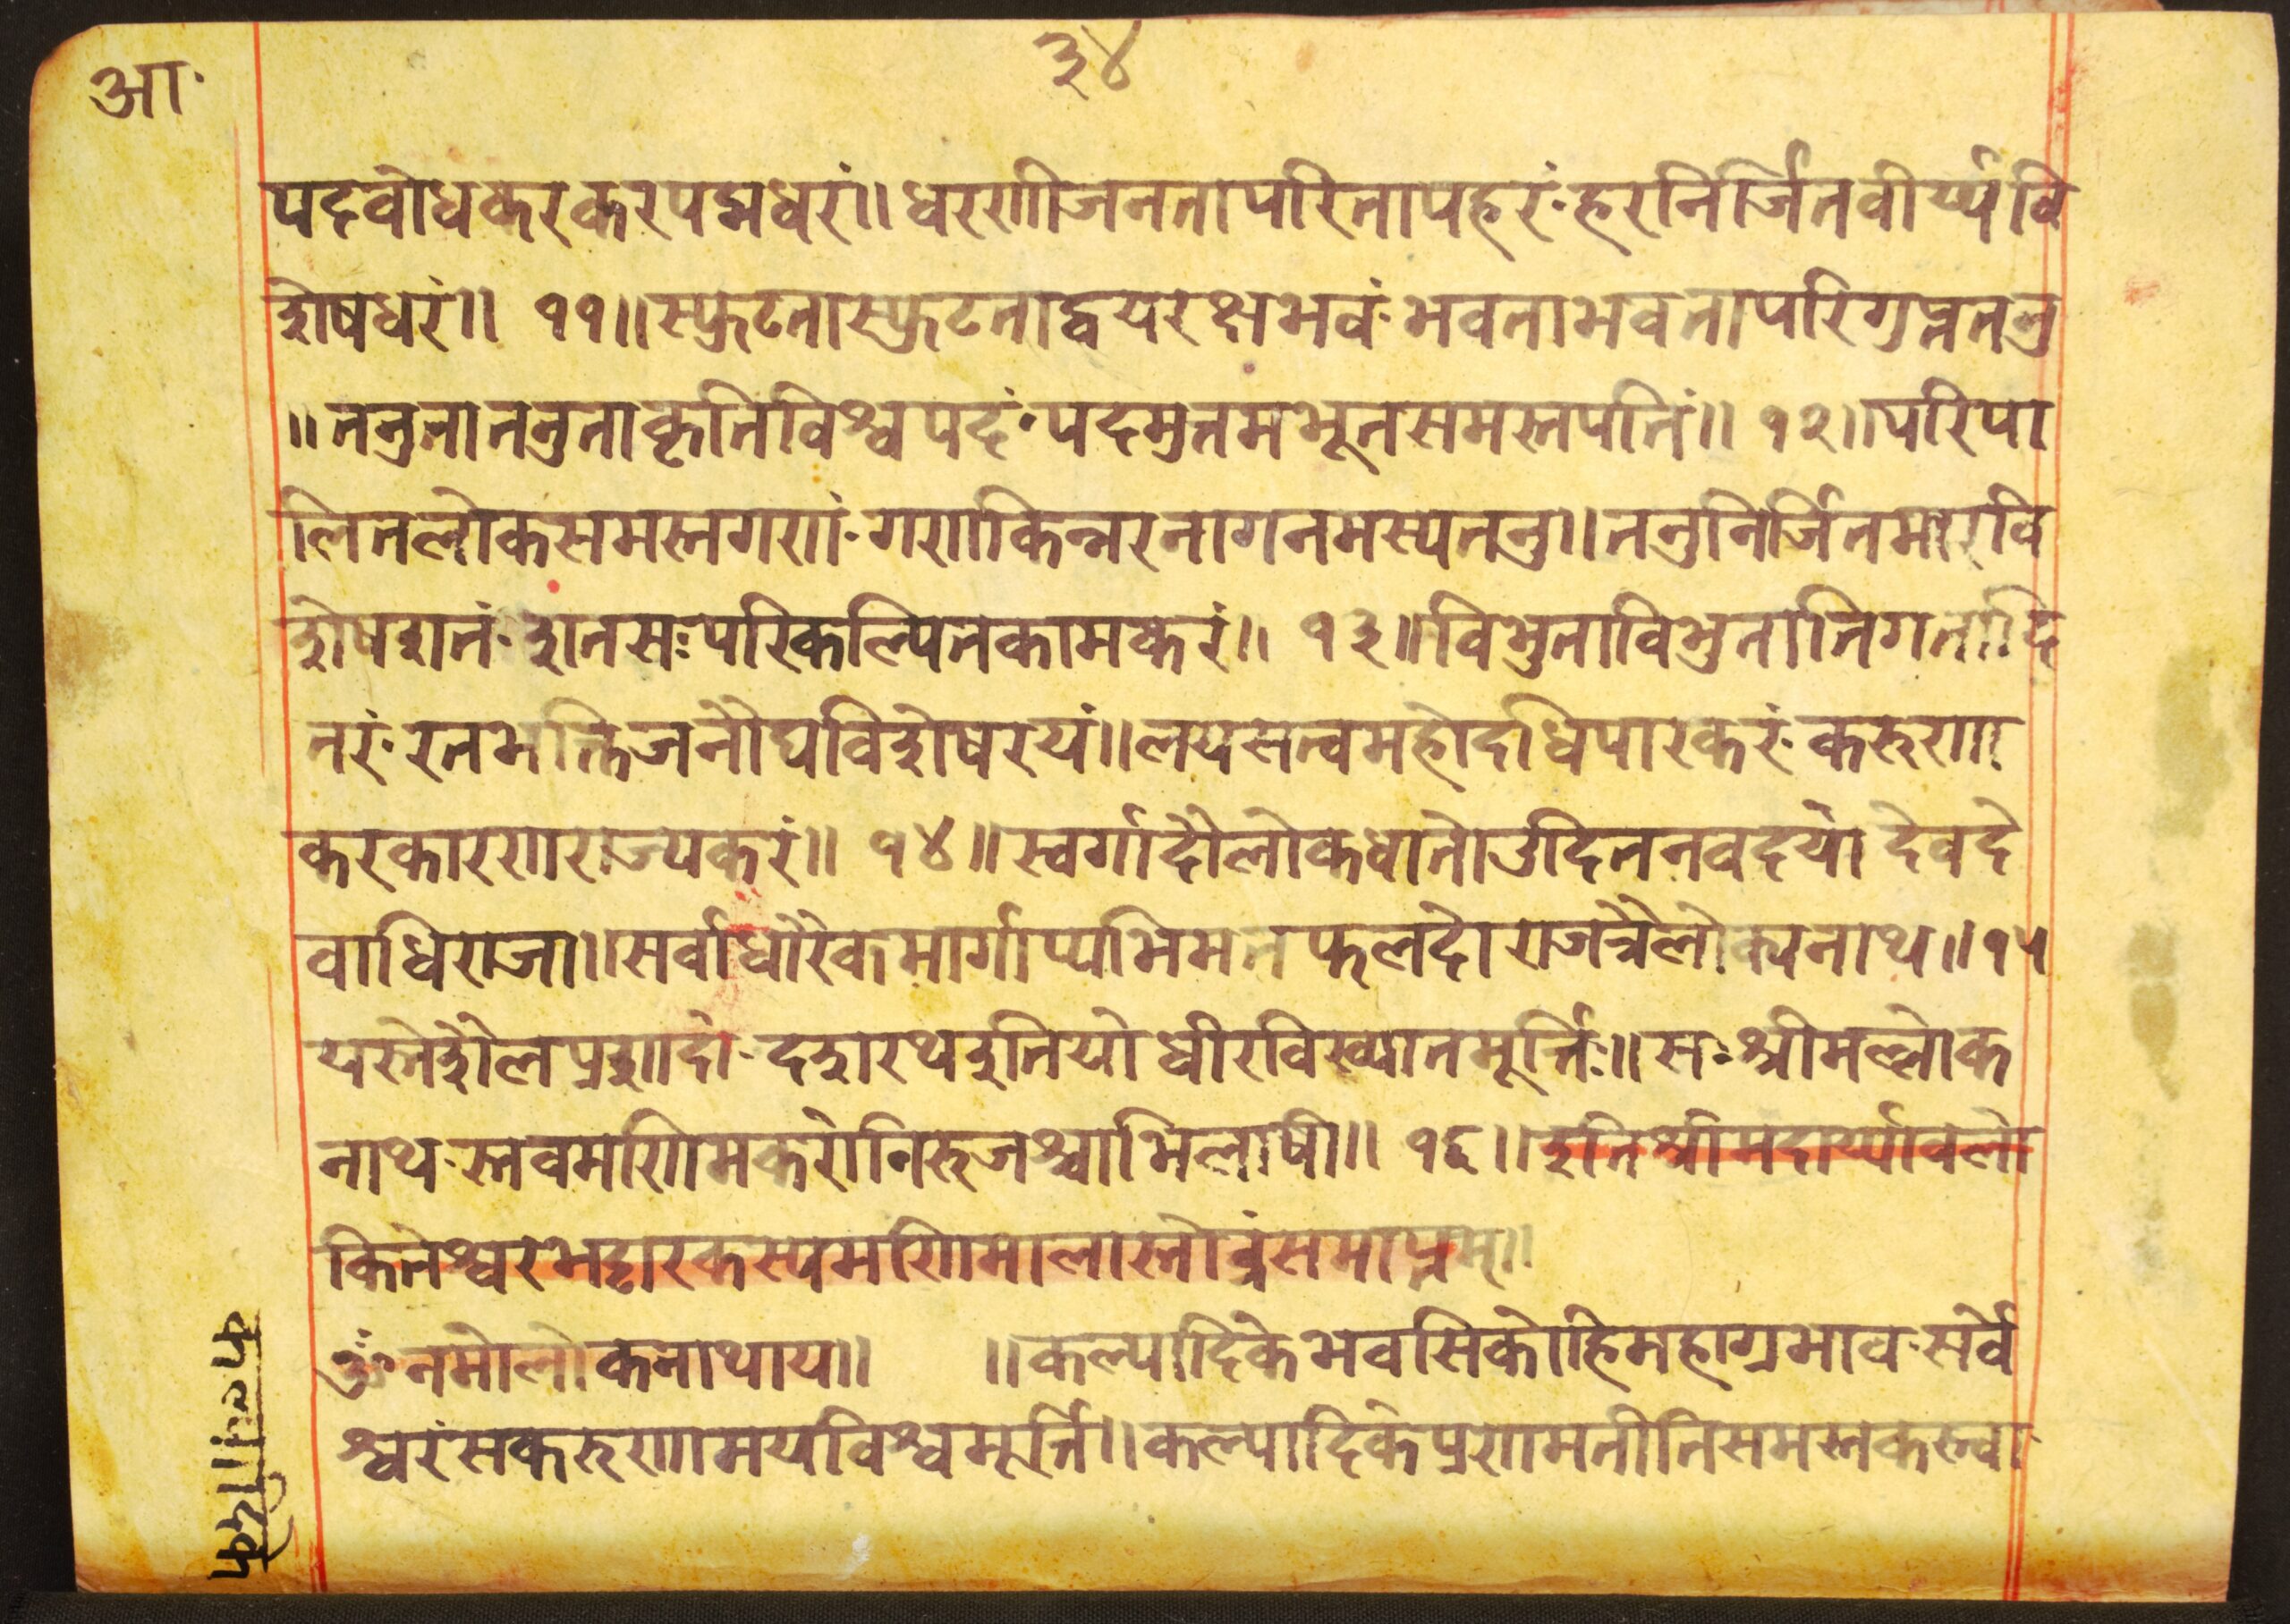 आ.
३४
पदवोधकरकरपद्मधरं॥धरणीजनतापरितापहरं·हरनिर्जितवीर्य्यवि
शेषधरं॥ ११॥स्फुटतास्फुटताद्वयरक्षभवं·भवताभवतापरिगुप्ततनु
॥ननुताननुताकृतिविश्वपदं·पदमुत्तमभूतसमस्तपतिं॥ १२॥परिपा
लितलोकसमस्तगणं·गणकिन्नरनागनमस्यतनु॥तनुनिर्जितमारवि
शेषशतं·शतसःपरिकल्पितकामकरं॥ १३॥विभुताविभुतातिगतादि
तरं·रतभक्तिजनौघविशेषरयं॥लयसत्वमहोदधिपारकरं·करुणा
करकारणराज्यकरं॥ १४॥स्वर्गादौलोकधातोउदितनवदयो देवदे
वाधिराजा॥सर्वाधारैकमार्गाप्यभिमतफलदो राजत्रैलोक्यनाथ॥१५
यस्तेशैलप्रशादो·दशरथइतियो धीरविख्यातमूर्त्तिः॥सःश्रीमल्लोक
नाथ·स्तवमणिमकरोतिरुजश्चाभिलाषी॥ १६॥इतिश्रीमदार्य्यावलो
कितेश्वरभट्टारकस्यमणिमालास्तोत्रंसमाप्तम्॥
ॐनमोलोकनाथाय॥ ॥कल्पादिकेभवसिकोहिमहाग्रभाव·सर्वे
श्वरंसकरुणामयविश्वमूर्त्ति॥कल्पादिकेप्रणमतीतिसमस्तकस्त्वा·
कल्पादिके